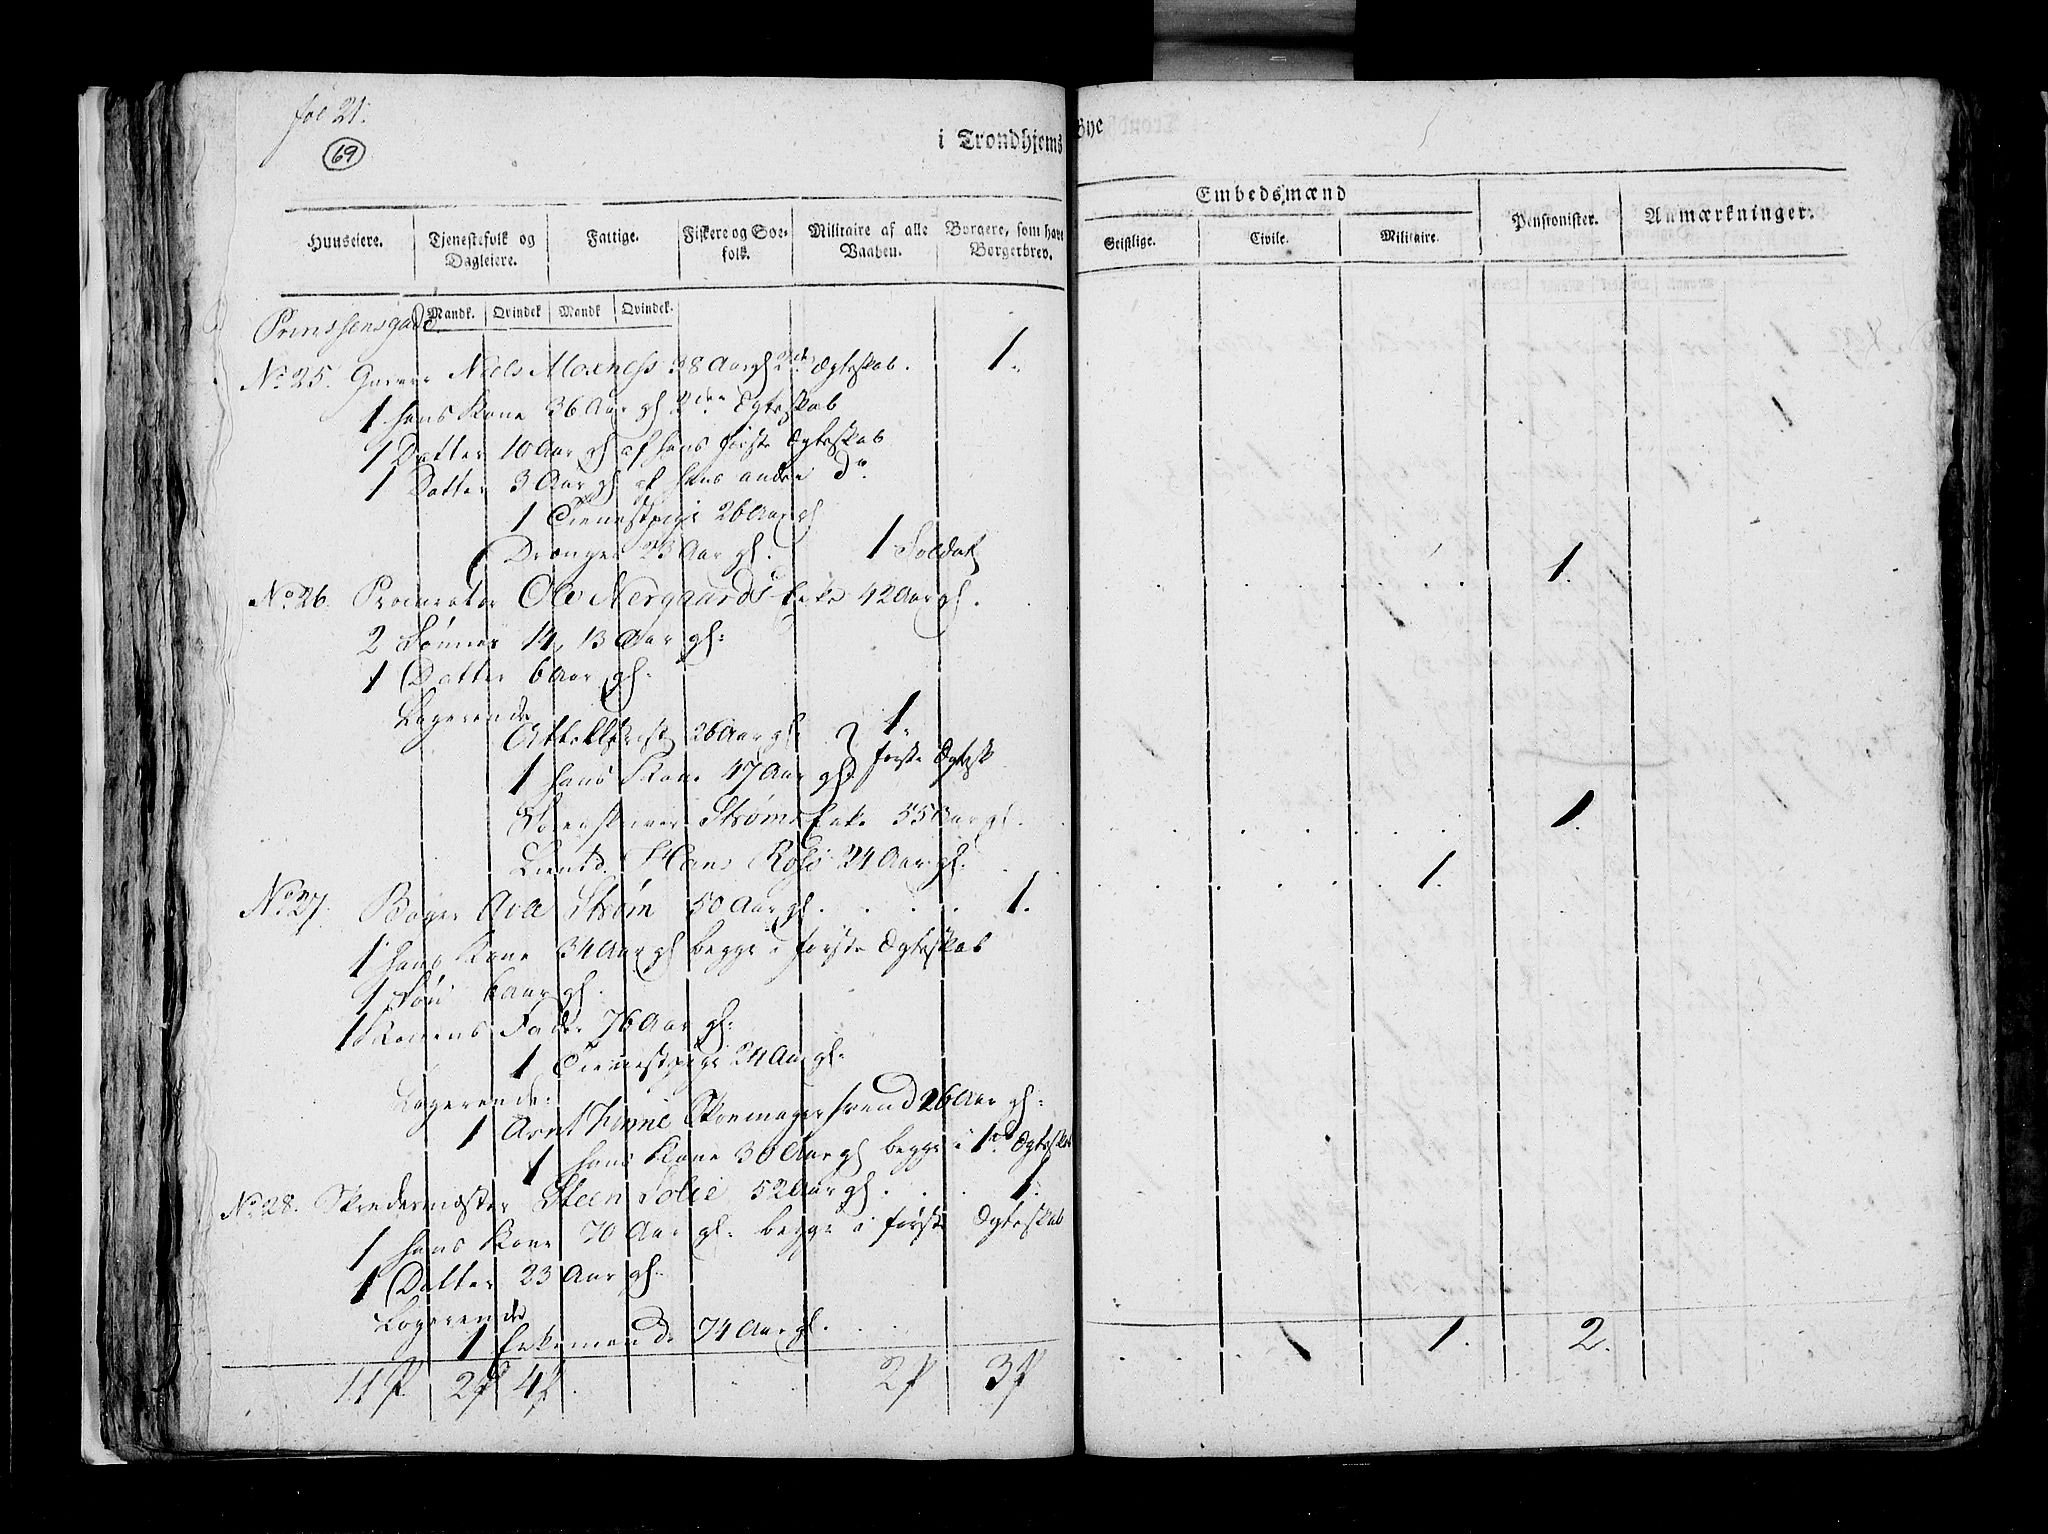 fol 21.
69
i Trondhjems Bye
Huuseiere. Tjenestefolk og Dagleiere. Fattige. Fiskere og Søefolk. Militaire af alle Vaaben. Borgere, som have Borgerbrev. Embedsmænd Pensionister. Anmærkninger.
Geistlige. Civile. Militaire.
Mandk. Qvindek Mandk Qvindek.
Prinssensgade
No 25. Niels Moxness 38 Aar gl 2de Ægteskab. 1.
1 hans Kone 36 Aar gl 2den Ægteskab
1 Datter 10 Aar gl af hans første Ægteskab
1 Datter 3 Aar gl af hans andre do
1 Tienestpige 26 Aar gl
Drenger 23 Aar gl. 1 Soldat
No 26. Procurator Ole Nergaards Enke 42 Aar gl. 1.
2 Sønner 14, 13 Aar gl:
1 Datter 6 Aar gl.
Logerende
26 Aar gl. 1.
1 hans Kone 47 Aar gl første Ægtesk
Sorenskriver Strøms Enke 55 Aar gl. 1.
Lieutd. Hans 24 Aar gl. 1.
No 27. Bager Ave Strøm 50 Aar gl. 1.
1 hans Kone 34 Aar gl begge i første Ægteskab
1 Søn 6 Aar gl.
1 Konens Fader 76 Aar gl:
1 Tienestpige 24 Aar gl:
Logerende:
1 Arnt Skoemagersvend 26 Aar gl:
1 hans Kone 30 Aar gl begge i 1ste Ægteskab
No 28. Skredermester Steen Solie 52 Aar gl. 1.
1 hans Kone 70 Aar gl: begge i første Ægteskab
1 Datter 23 Aar gl.
Logerende
1 Enkemand 74 Aar gl.
11 P 2 P 4 P 2 P 3 P 1. 2.